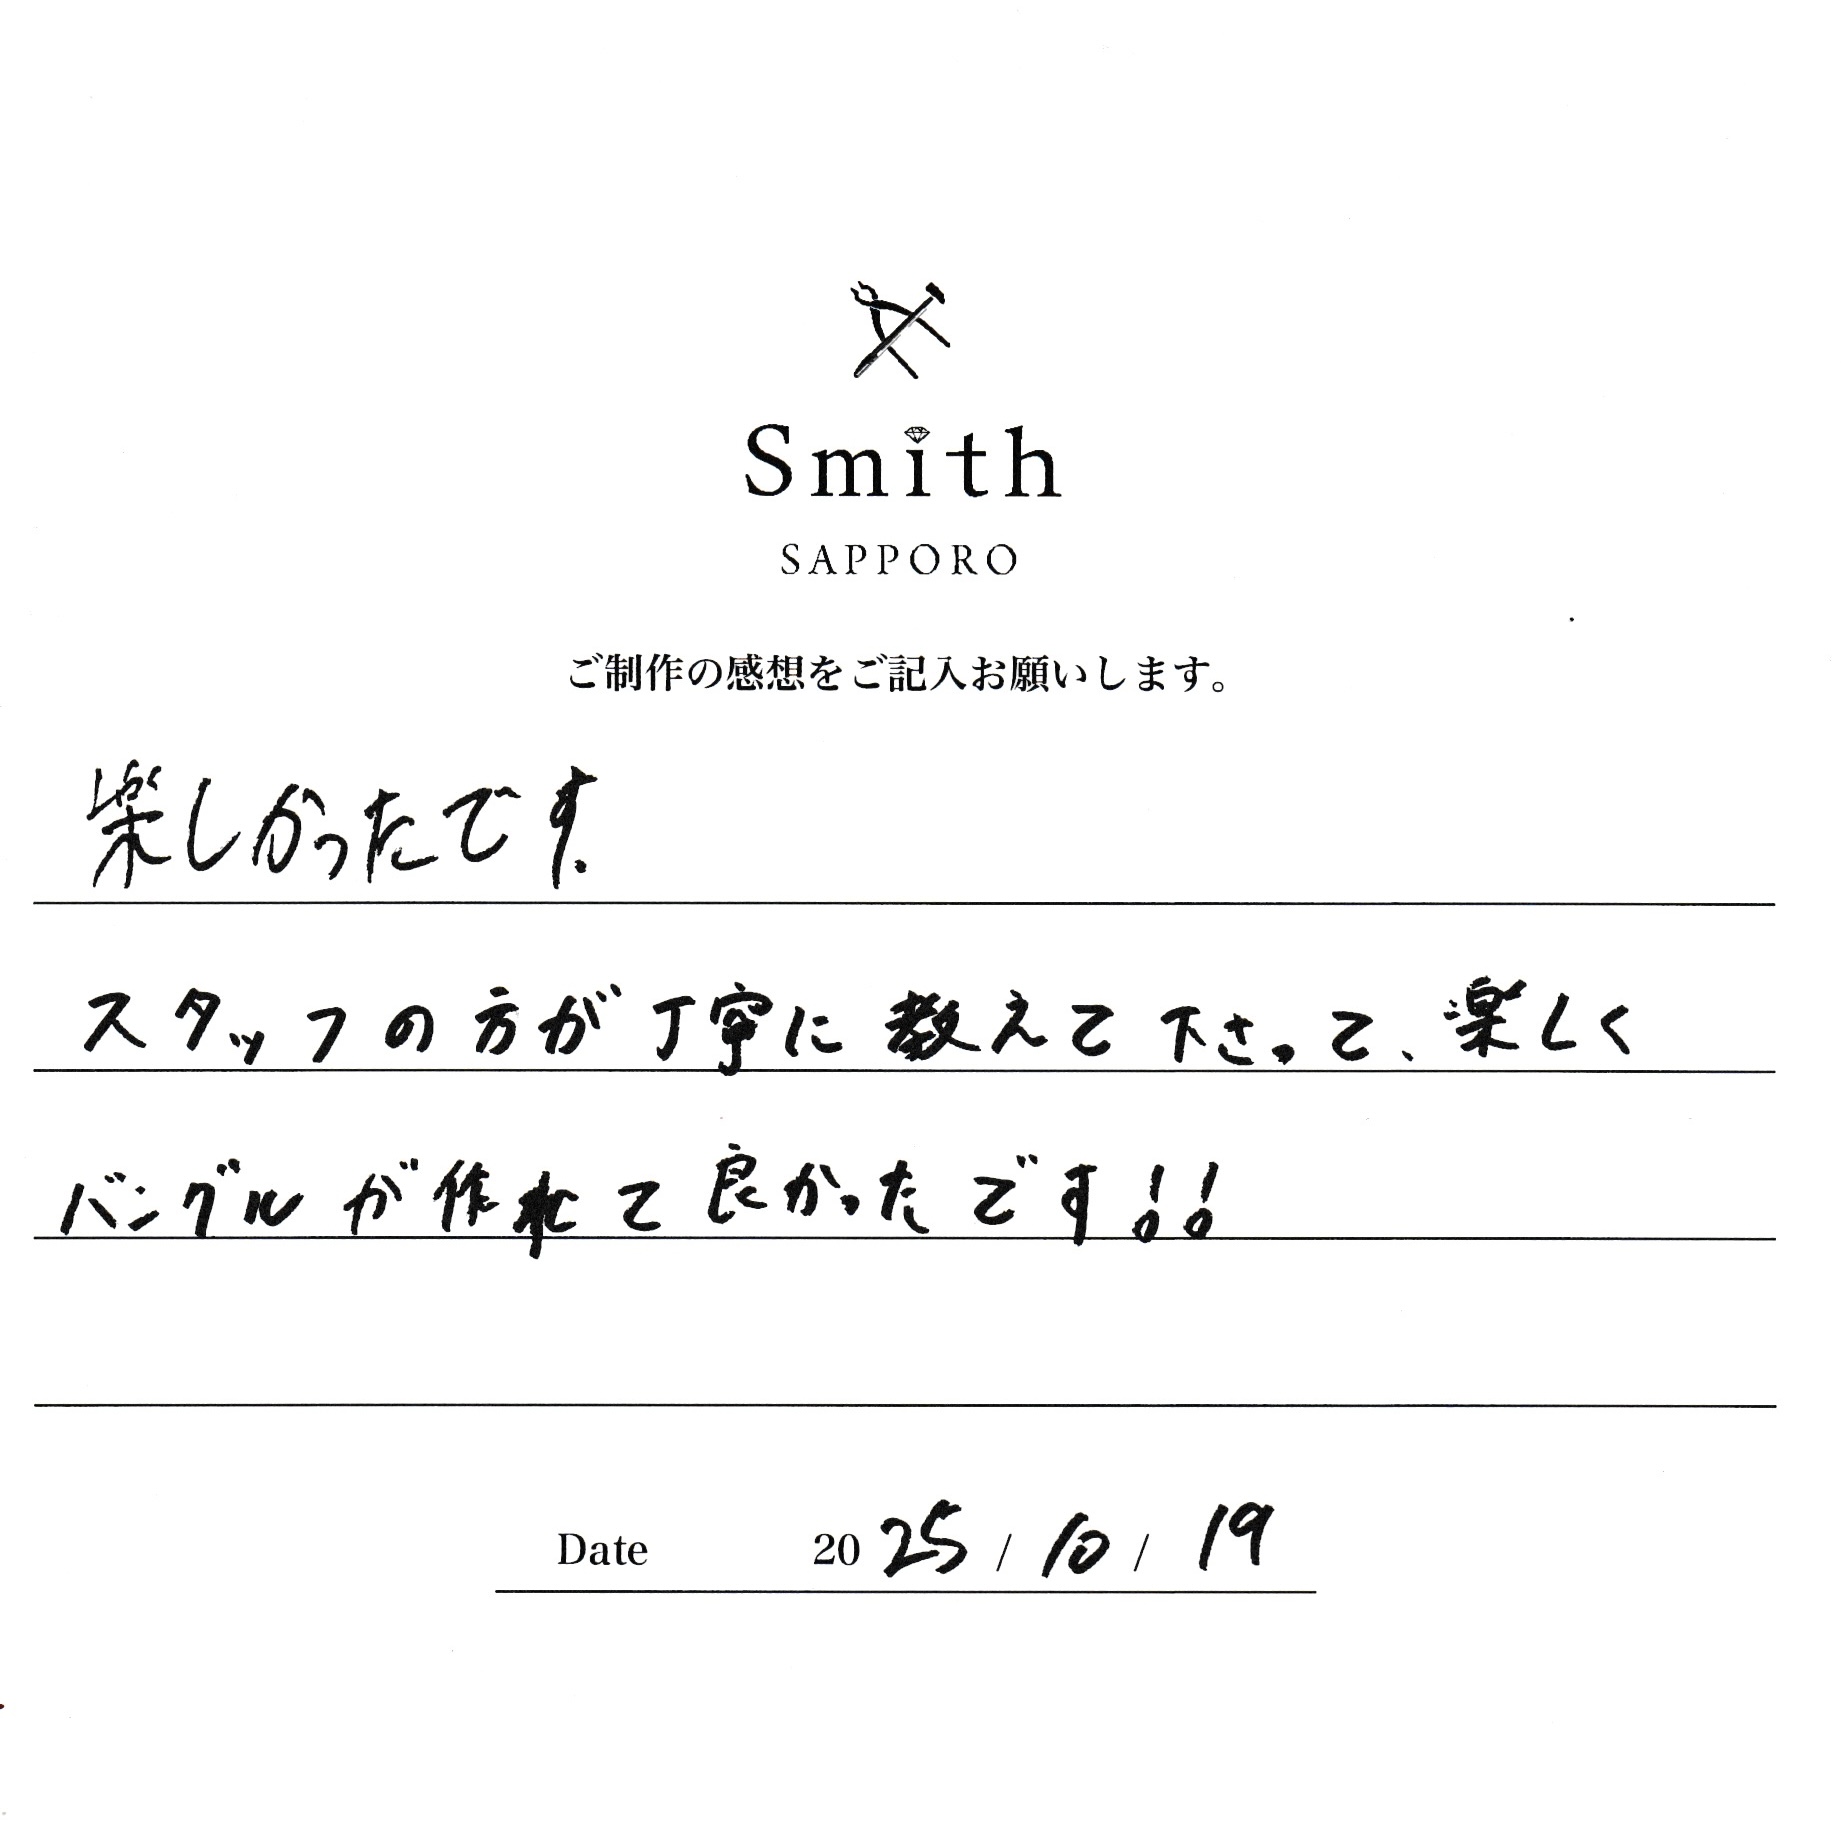 Smith
SAPPORO
ご制作の感想をご記入お願いします。
楽しかったです.
スタッフの方が丁寧に教えて下さって、楽しく
バングルが作れて良かったです!!
Date 2025 / 10 / 19